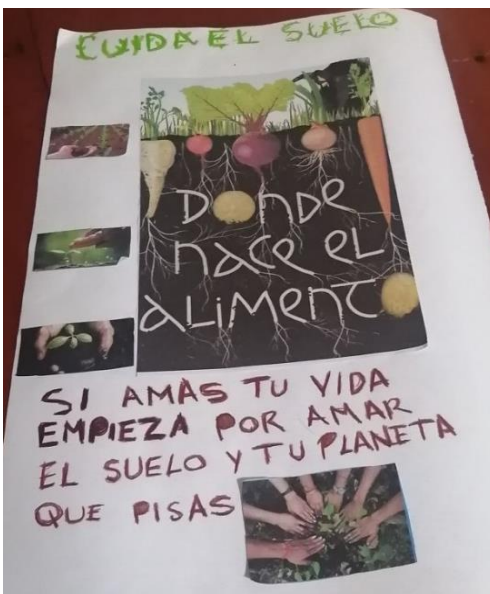 CUIDA EL SUELO
DONDE
nace el
aliment
SI AMAS TU VIDA
EMPIEZA POR AMAR
EL SUELO Y TU PLANETA
QUE PISAS